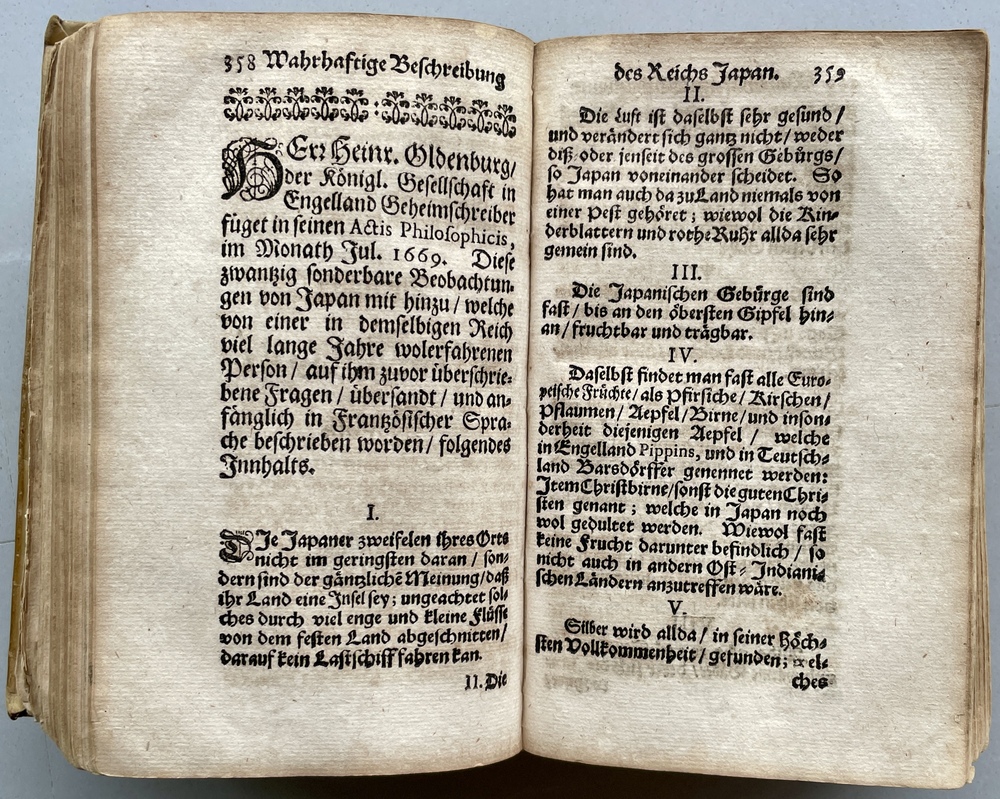 358 Wahrhaftige Beſchreibung
HErꝛ Heinr. Oldenburg/
der Königl. Geſellſchaft in
Engelland Geheimſchreiber
füget in ſeinen Actis Philoſophicis,
im Monath Jul. 1669. Dieſe
zwantzig ſonderbare Beobachtun-
gen von Japan mit hinzu / welche
von einer in demſelbigen Reich
viel lange Jahre wolerfahrenen
Perſon / auf ihm zuvor überſchrie-
bene Fragen / überſandt / und an-
fänglich in Frantzöſiſcher Spra-
che beſchrieben worden / folgendes
Innhalts.
I.
DIe Japaner zweifelen ihres Orts
nicht im geringſten daran / ſon-
dern ſind der gäntzlichẽ Meinung/daß
ihr Land eine Inſel ſey; ungeachtet ſol-
ches durch viel enge und kleine Flüſſe
von dem feſten Land abgeſchnitten/
darauf kein Laſtſchiff fahren kan.
II. Die
des Reichs Japan. 359
II.
Die Luft iſt daſelbſt ſehr geſund /
und verändert ſich gantz nicht / weder
diß- oder jenſeit des groſſen Gebürgs/
ſo Japan voneinander ſcheidet. So
hat man auch da zu Land niemals von
einer Peſt gehöret; wiewol die Kin-
derblattern und rothe Ruhr allda ſehr
gemein ſind.
III.
Die Japaniſchen Gebürge ſind
faſt / bis an den öberſten Gipfel hin-
an / fruchtbar und trägbar.
IV.
Daſelbſt findet man faſt alle Euro-
peiſche Früchte / als Pfirſiche / Kirſchen /
Pflaumen / Aepfel / Birne / und inſon-
derheit diejenigen Aepfel / welche
in Engelland Pippins, und in Teutſch-
land Barsdörffer genennet werden:
Item Chriſtbirne/ſonſt die guten Chri-
ſten genant; welche in Japan noch
wol gedultet werden. Wiewol faſt
keine Frucht darunter befindlich / ſo
nicht auch in andern Oſt-Indiani-
ſchen Ländern anzutreffen wäre.
V.
Silber wird allda / in ſeiner Höch-
ſten Vollkommenheit / gefunden; wel-
ches